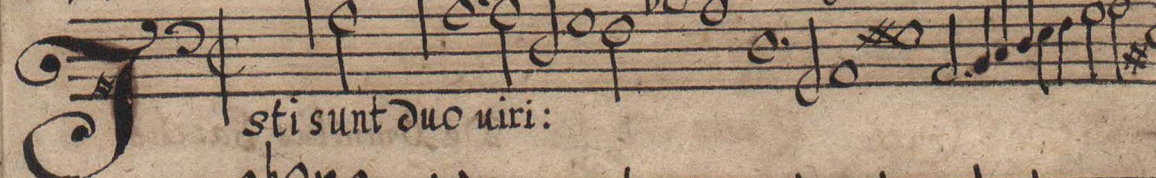 Isti sunt duo uiri: